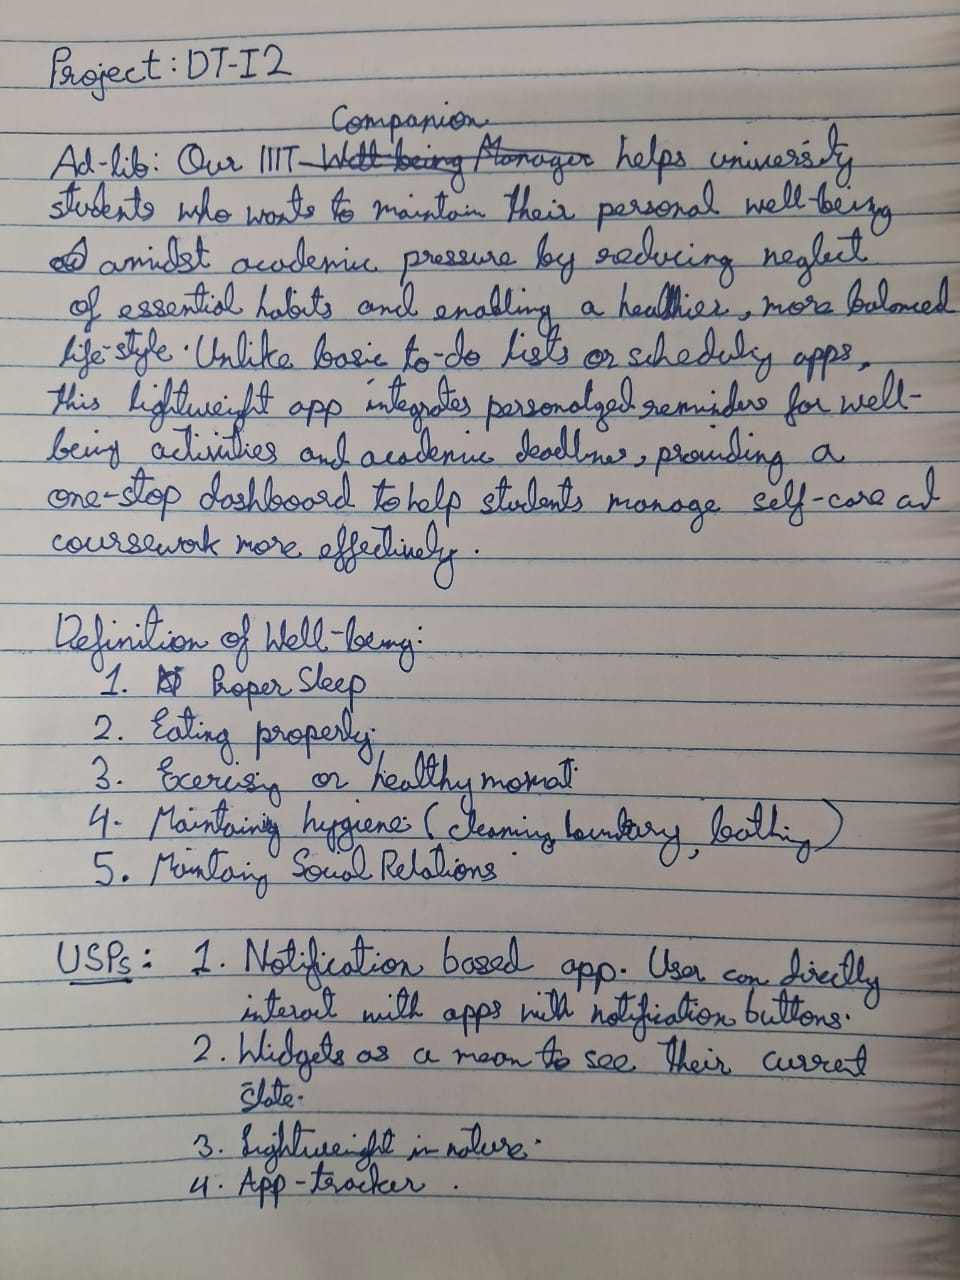 Project: DT-I2
Companion
Ad-lib: Our IIIT Well being Manager helps university
students who wants to maintain their personal well-being
amidst academic pressure by reducing neglect
of essential habits and enabling a healthier, more balanced
life-style. Unlike basic to-do lists or scheduly apps,
this lightweight app integrates personalged reminders for well-
being activities and academic deadlines, providing a
one-stop dashboard to help students manage self-care ad
coursework more effectively.
Definition of Well-being:
1. Proper Sleep
2. Eating properly.
3. Exercisig or healthy
4. Maintaining hygiene (cleaning, laundary, bathing)
5. Maintaing Social Relations
USPs: 1. Notification based app. User can directly
interact with apps with notification buttons.
2. Widgets as a mean to see their current
State.
3. Lightweight in nature.
4. App-tracker.